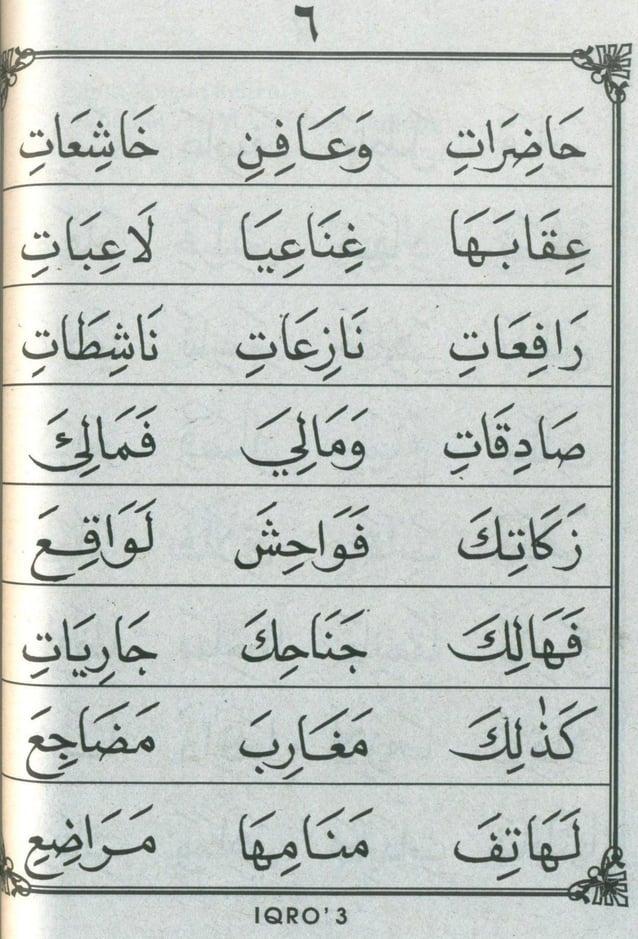 ٦
حَاضِرَاتِ وَعَافِنِ خَاشِعَاتِ
عِقَابَهَا غِنَاعِيَا لَاعِبَاتِ
رَافِعَاتِ نَازِعَاتِ نَاشِطَاتِ
صَادِقَاتِ وَمَالِيَ فَمَالِئَ
زَكَاتِكَ فَوَاحِشَ لَوَاقِعَ
فَهَالِكَ جَنَاحِكَ جَارِيَاتِ
كَذٰلِكَ مَغَارِبَ مَضَاجِعَ
لَهَاتِفَ مَنَامِهَا مَرَاضِعِ
IQRO' 3